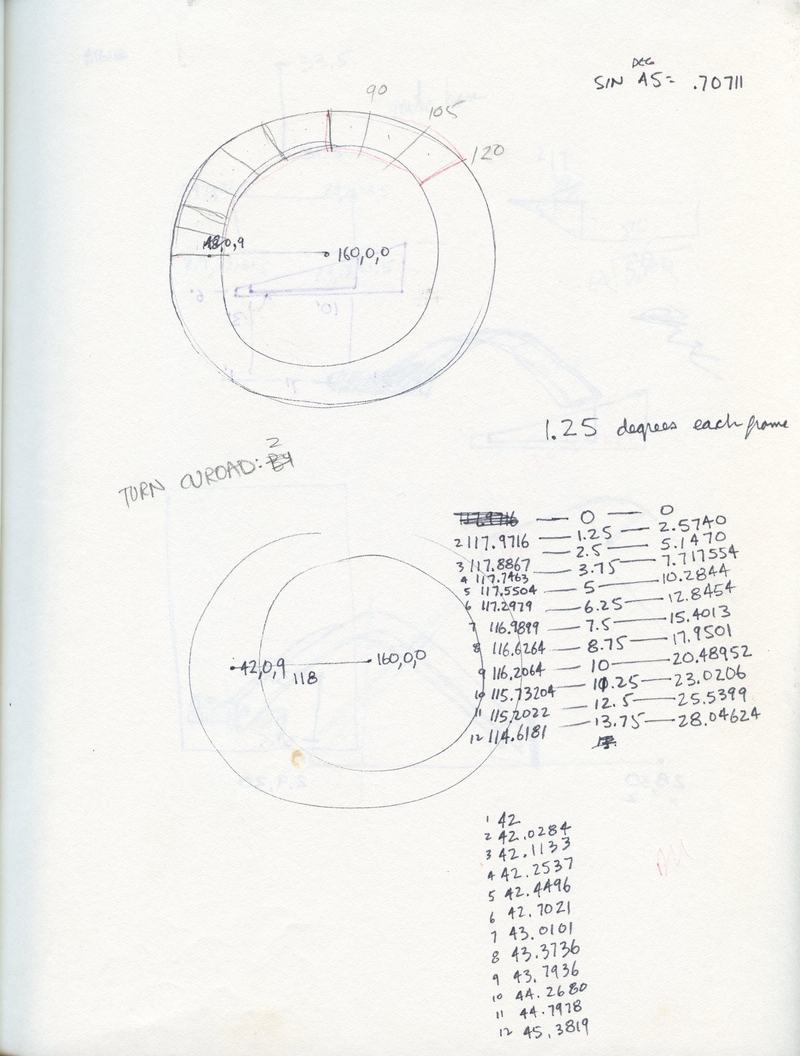 DEG
SIN 45= .70711
90
105
120
160,0,0
1.25 degrees each frame
TURN CUROAD: 2
— 0 — 0
2 117.9716 — 1.25 — 2.5740
3 117.8867 — 2.5 — 5.1470
4 117.7463 — 3.75 — 7.717554
5 117.5504 — 5 — 10.2844
6 117.2979 — 6.25 — 12.8454
7 116.9899 — 7.5 — 15.4013
8 116.6264 — 8.75 — 17.9501
9 116.2064 — 10 — 20.48952
10 115.73204 — 11.25 — 23.0206
11 115.2022 — 12.5 — 25.5399
12 114.6181 — 13.75 — 28.04624
42,0,9
118
160,0,0
1 42
2 42.0284
3 42.1133
4 42.2537
5 42.4496
6 42.7021
7 43.0101
8 43.3736
9 43.7936
10 44.2680
11 44.7978
12 45.3819